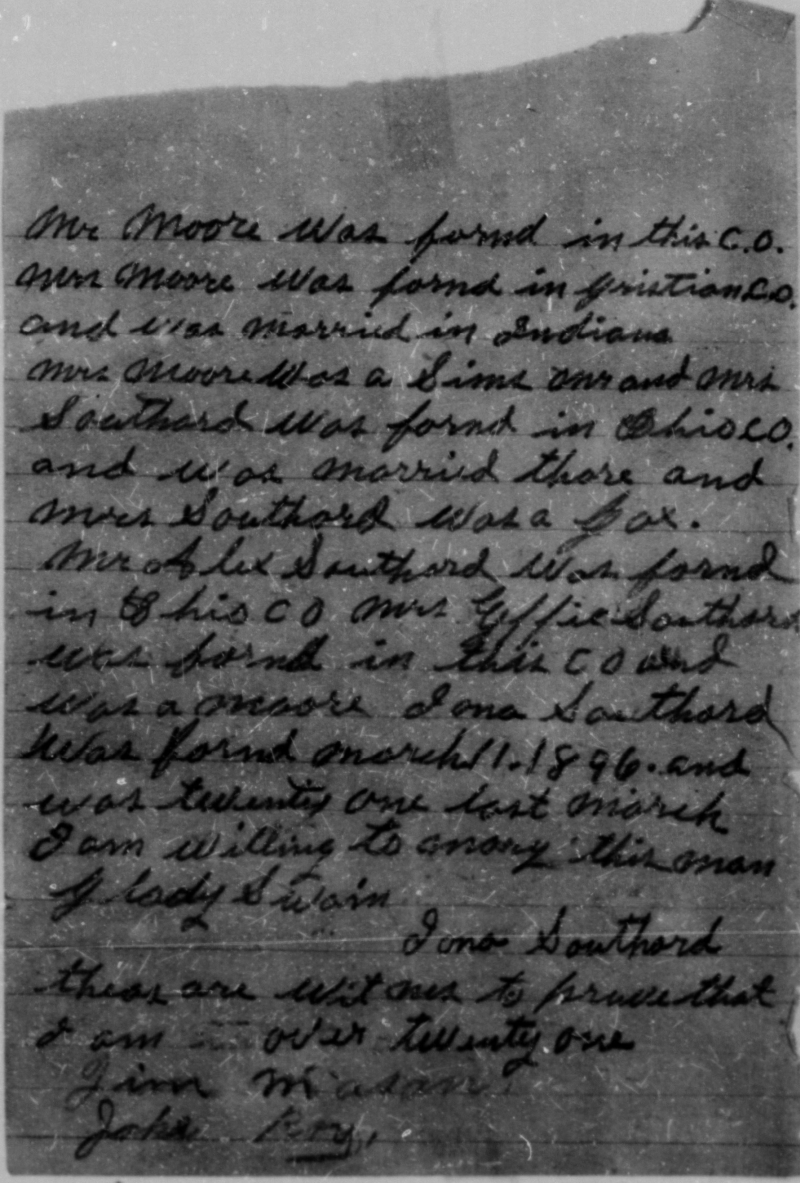 Mr Moore was fornd in this C.O.
Mrs Moore was fornd in Gristian C.O.
and was married in Indiana
Mrs Moore was a Sims Mr and Mrs
Southard was fornd in Ohio C.O.
and was married thare and
Mrs Southard was a Fox.
Mr Alex Southard was fornd
in Ohio CO Mrs Effie Southard
was fornd in this CO and
was a moore Iona Southard
Was fornd march 11. 1896. and
was twenty one last march
I am willing to marry this man
Glady Swain
Iona Southard
theas are witnes to pruve that
I am over twenty one
Jim
John